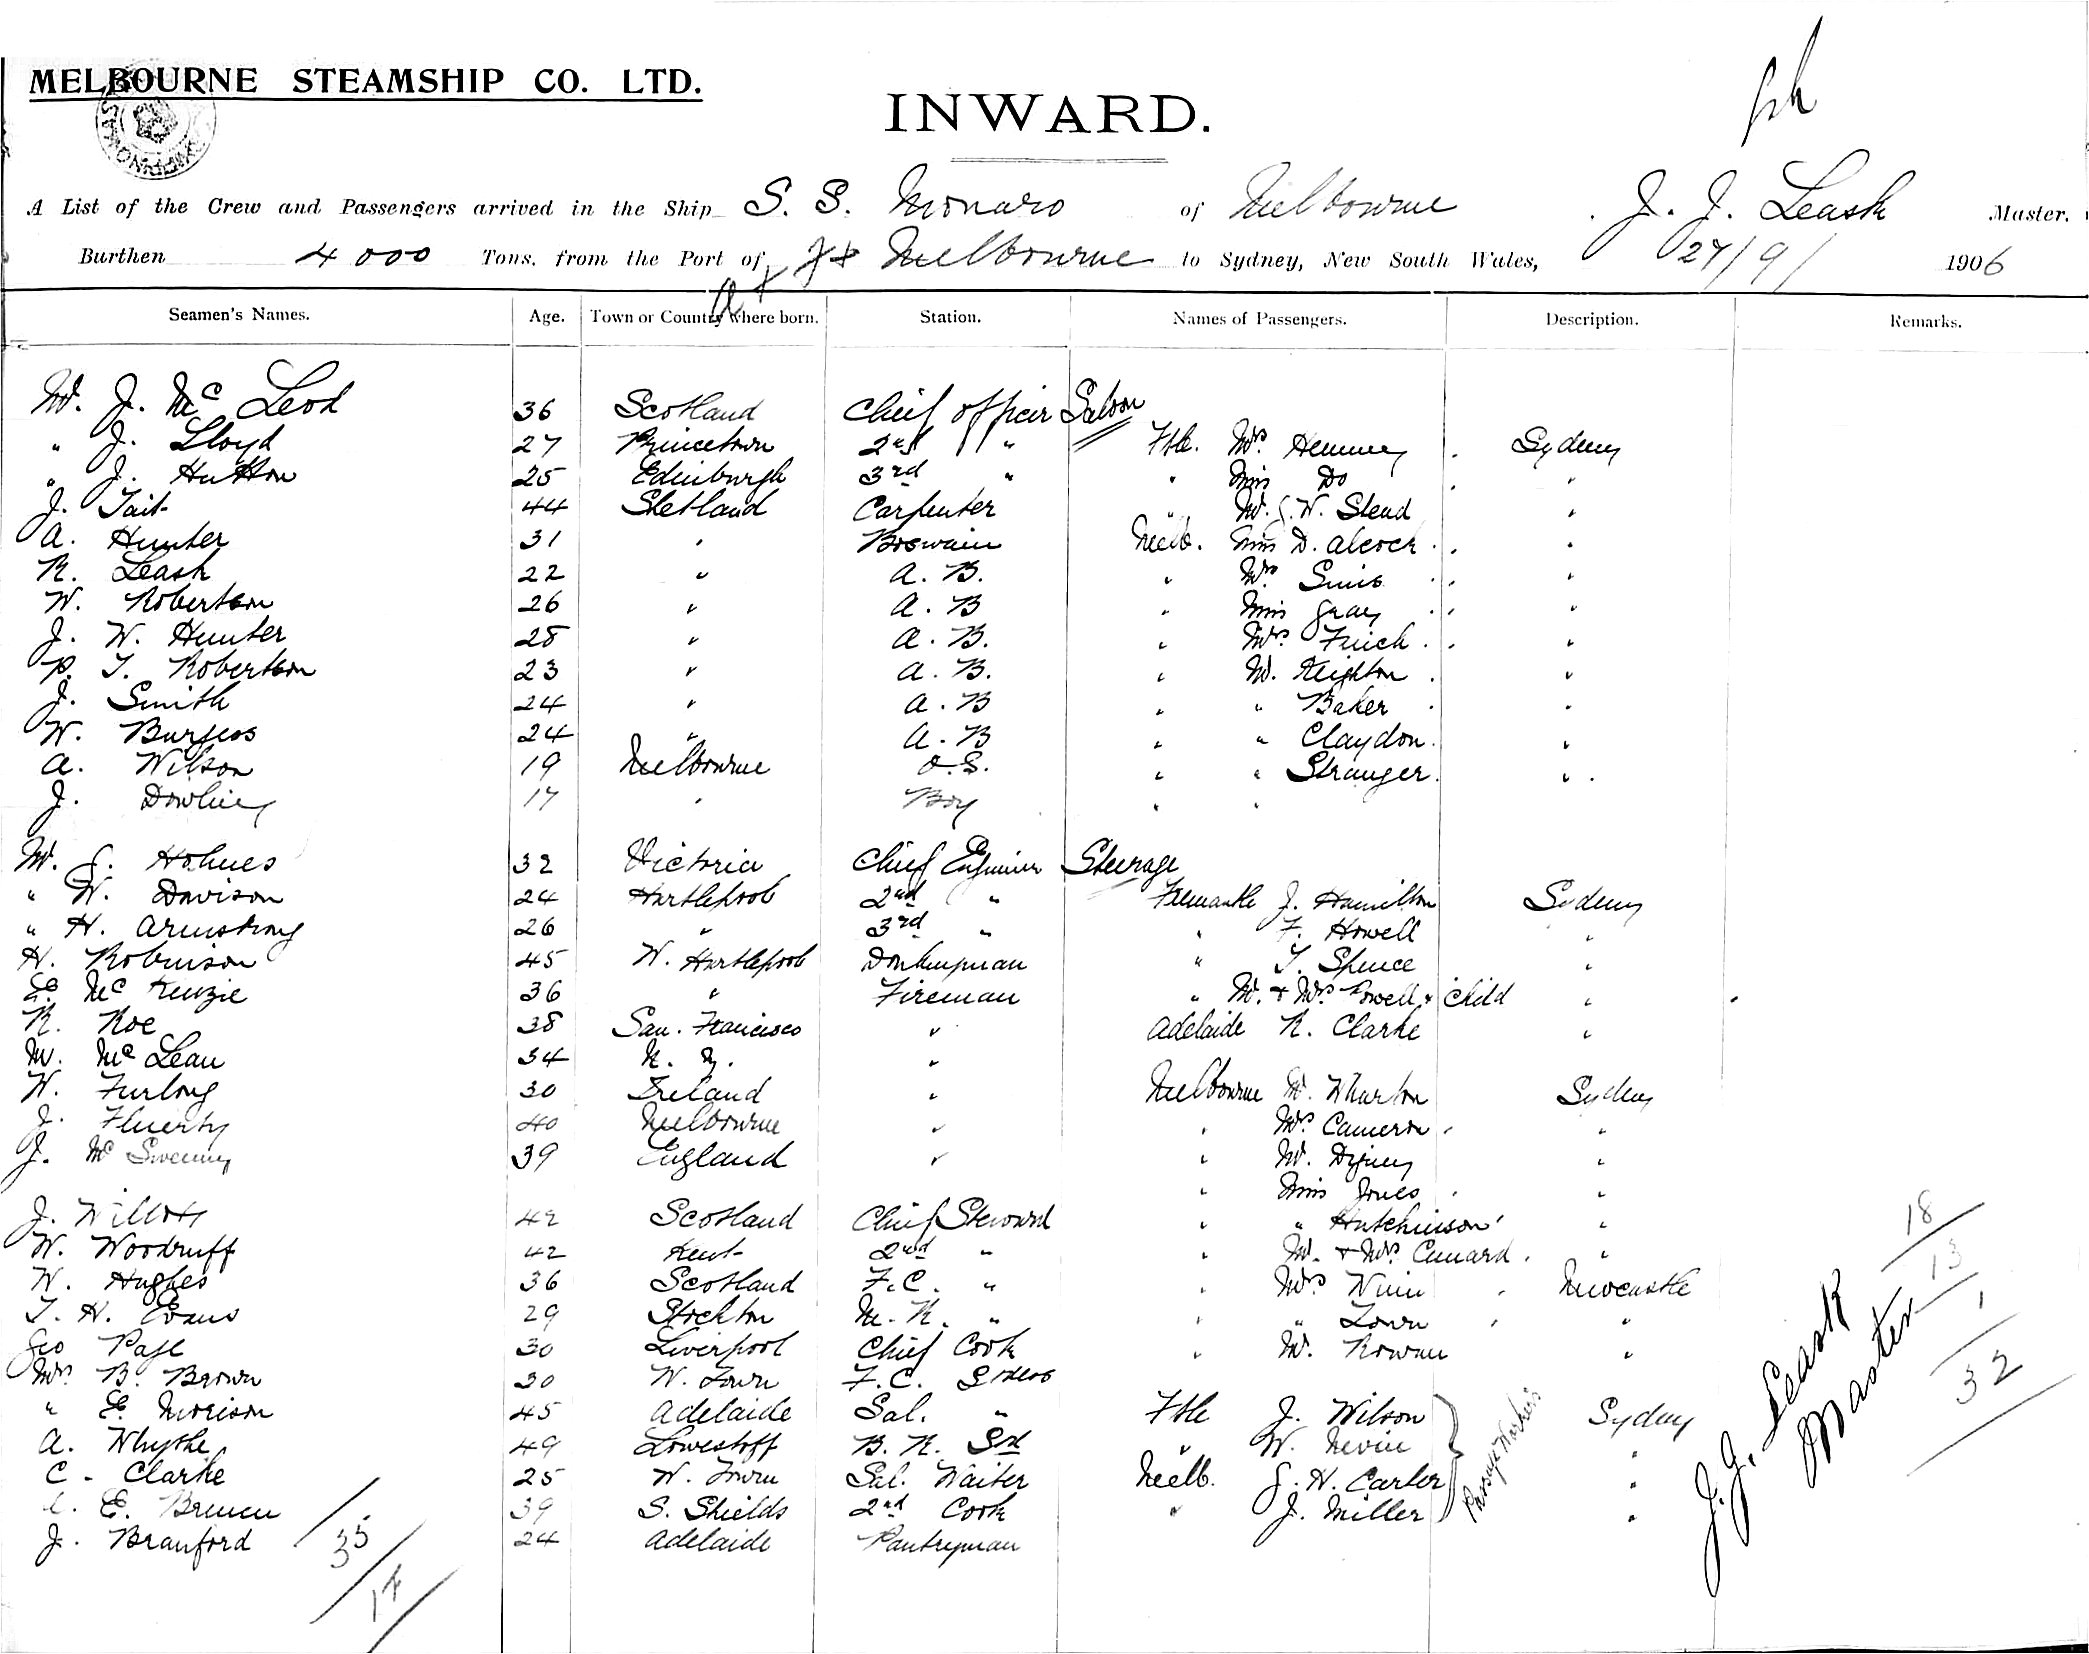 MELBOURNE STEAMSHIP CO. LTD.
INWARD.
A List of the Crew and Passengers arrived in the Ship S. S. Monaro of Melbourne J. J. Leask Master.
Burthen 4000 Tons, from the Port of Melbourne to Sydney, New South Wales, 27/9/ 1906
Seamen's Names. Age. Town or Country where born. Station. Names of Passengers. Description. Remarks.
M. J. Mc Leod 36 Scotland Chief officer Saloon
" J. Lloyd 27 Princetown 2nd " Ftle. Mrs Hemmey Sydney
" J. Hutton 25 Edinburgh 3rd " " Miss Do "
J. Tait 44 Shetland Carpenter " M. G. W. Stead "
A. Hunter 31 " Boswain Melb. Miss D. Alcock "
R. Leask 22 " A. B. " Mrs Sims "
W. Robertson 26 " A. B " Miss Gray "
J. W. Hunter 28 " A. B. " Mrs Finch "
P. T. Robertson 23 " A. B. " M. Keighton "
J. Smith 24 " A. B " " Baker "
W. Burgess 24 " A. B " " Claydon "
A. Wilson 19 Melbourne O. S. " " Stranger "
J. Dowling 17 " Boy " "
M. G. Holmes 32 Victoria Chief Engineer Steerage
" W. Davison 24 Hartlepool 2nd " Fremantle J. Hamilton Sydney
" H. Armstrong 26 " 3rd " " F. Howell "
H. Robinson 45 W. Hartlepool Donkeyman " T. Spence "
E. Mc Kenzie 36 " Fireman " M. & Mrs Powell & Child "
R. Roe 38 San. Francisco " Adelaide R. Clarke "
M. Mc Lean 34 N. Z. "
W. Furlong 30 Ireland " Melbourne M. Wharton Sydney
J. Fluerty 40 Melbourne " " Mrs Cameron "
J. Mc Sweeny 39 England " " M. Digney "
" Miss Jones "
J. Willott 42 Scotland Chief Steward " " Hutchinson "
W. Woodruff 42 Kent 2nd " " M. & Mrs Cunard "
W. Hughes 36 Scotland F. C. " " Mrs Ninn Newcastle
T. H. Evans 29 Stockton M. R. " " " Town "
Geo Page 30 Liverpool Chief Cook " M. Rowan "
Mrs B. Brown 30 W. Town F. C. Stdess
" E. Morison 45 Adelaide Sal. " Ftle J. Wilson Sydney
A. Whythe 49 Lowestoff B. R. Std " W. Nevin "
C. Clarke 25 W. Town Sal. Waiter Melb. G. H. Carter "
E. Brewen 39 S. Shields 2nd Cook " J. Miller "
J. Branford 24 Adelaide Pantryman
Passage Workers
35
17
18
13
1
32
J. J. Leask
Master